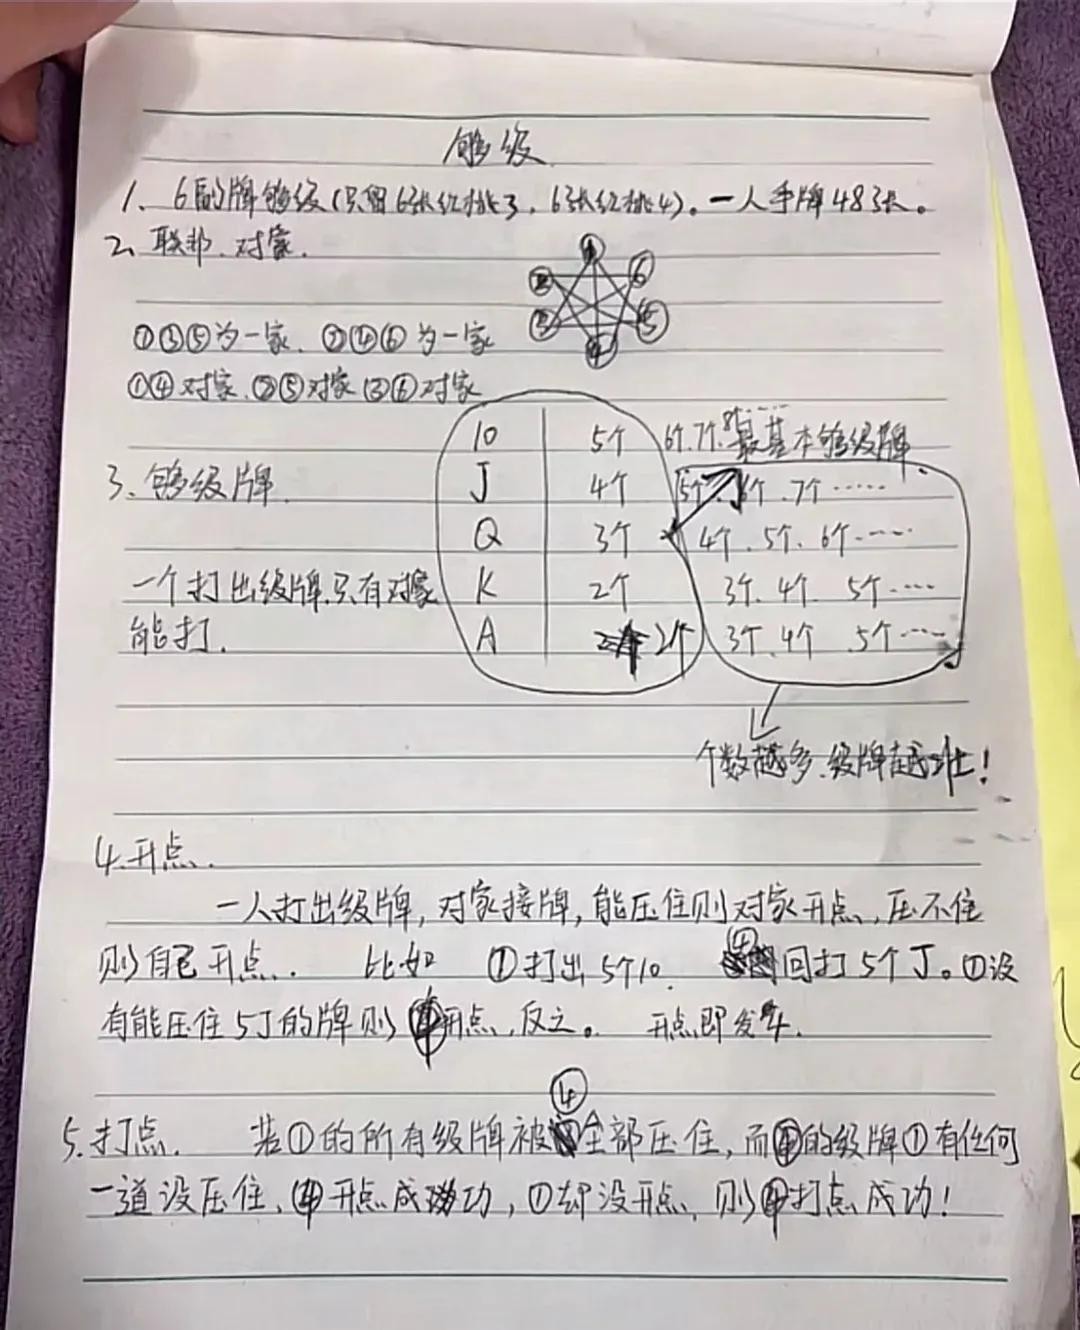 够级
1、6副牌够级(只留6张红桃3，6张红桃4)。一人手牌48张。
2、联邦、对家.
① ② ③ ④ ⑤ ⑥
①③⑤为一家、②④⑥为一家
①④对家、②⑤对家③⑥对家
10 5个 6个.7个.8个……最基本够级牌
3、够级牌.
J 4个 5个、6个、7个……
Q 3个 4个、5个、6个……
一个打出级牌.只有对家
K 2个 3个、4个、5个……
能打.
A 2个 3个、4个、5个……
个数越多、级牌越壮!
4、开点、
一人打出级牌，对家接牌，能压住则对家开点、压不住
则自己开点、比如 ①打出5个10. ④回打5个J。①没
有能压住5J的牌则④开点、反之。 开点即发4.
5、打点、若①的所有级牌被④全部压住，而④的级牌①有任何
一道没压住、④开点成功，①却没开点、则④打点成功!